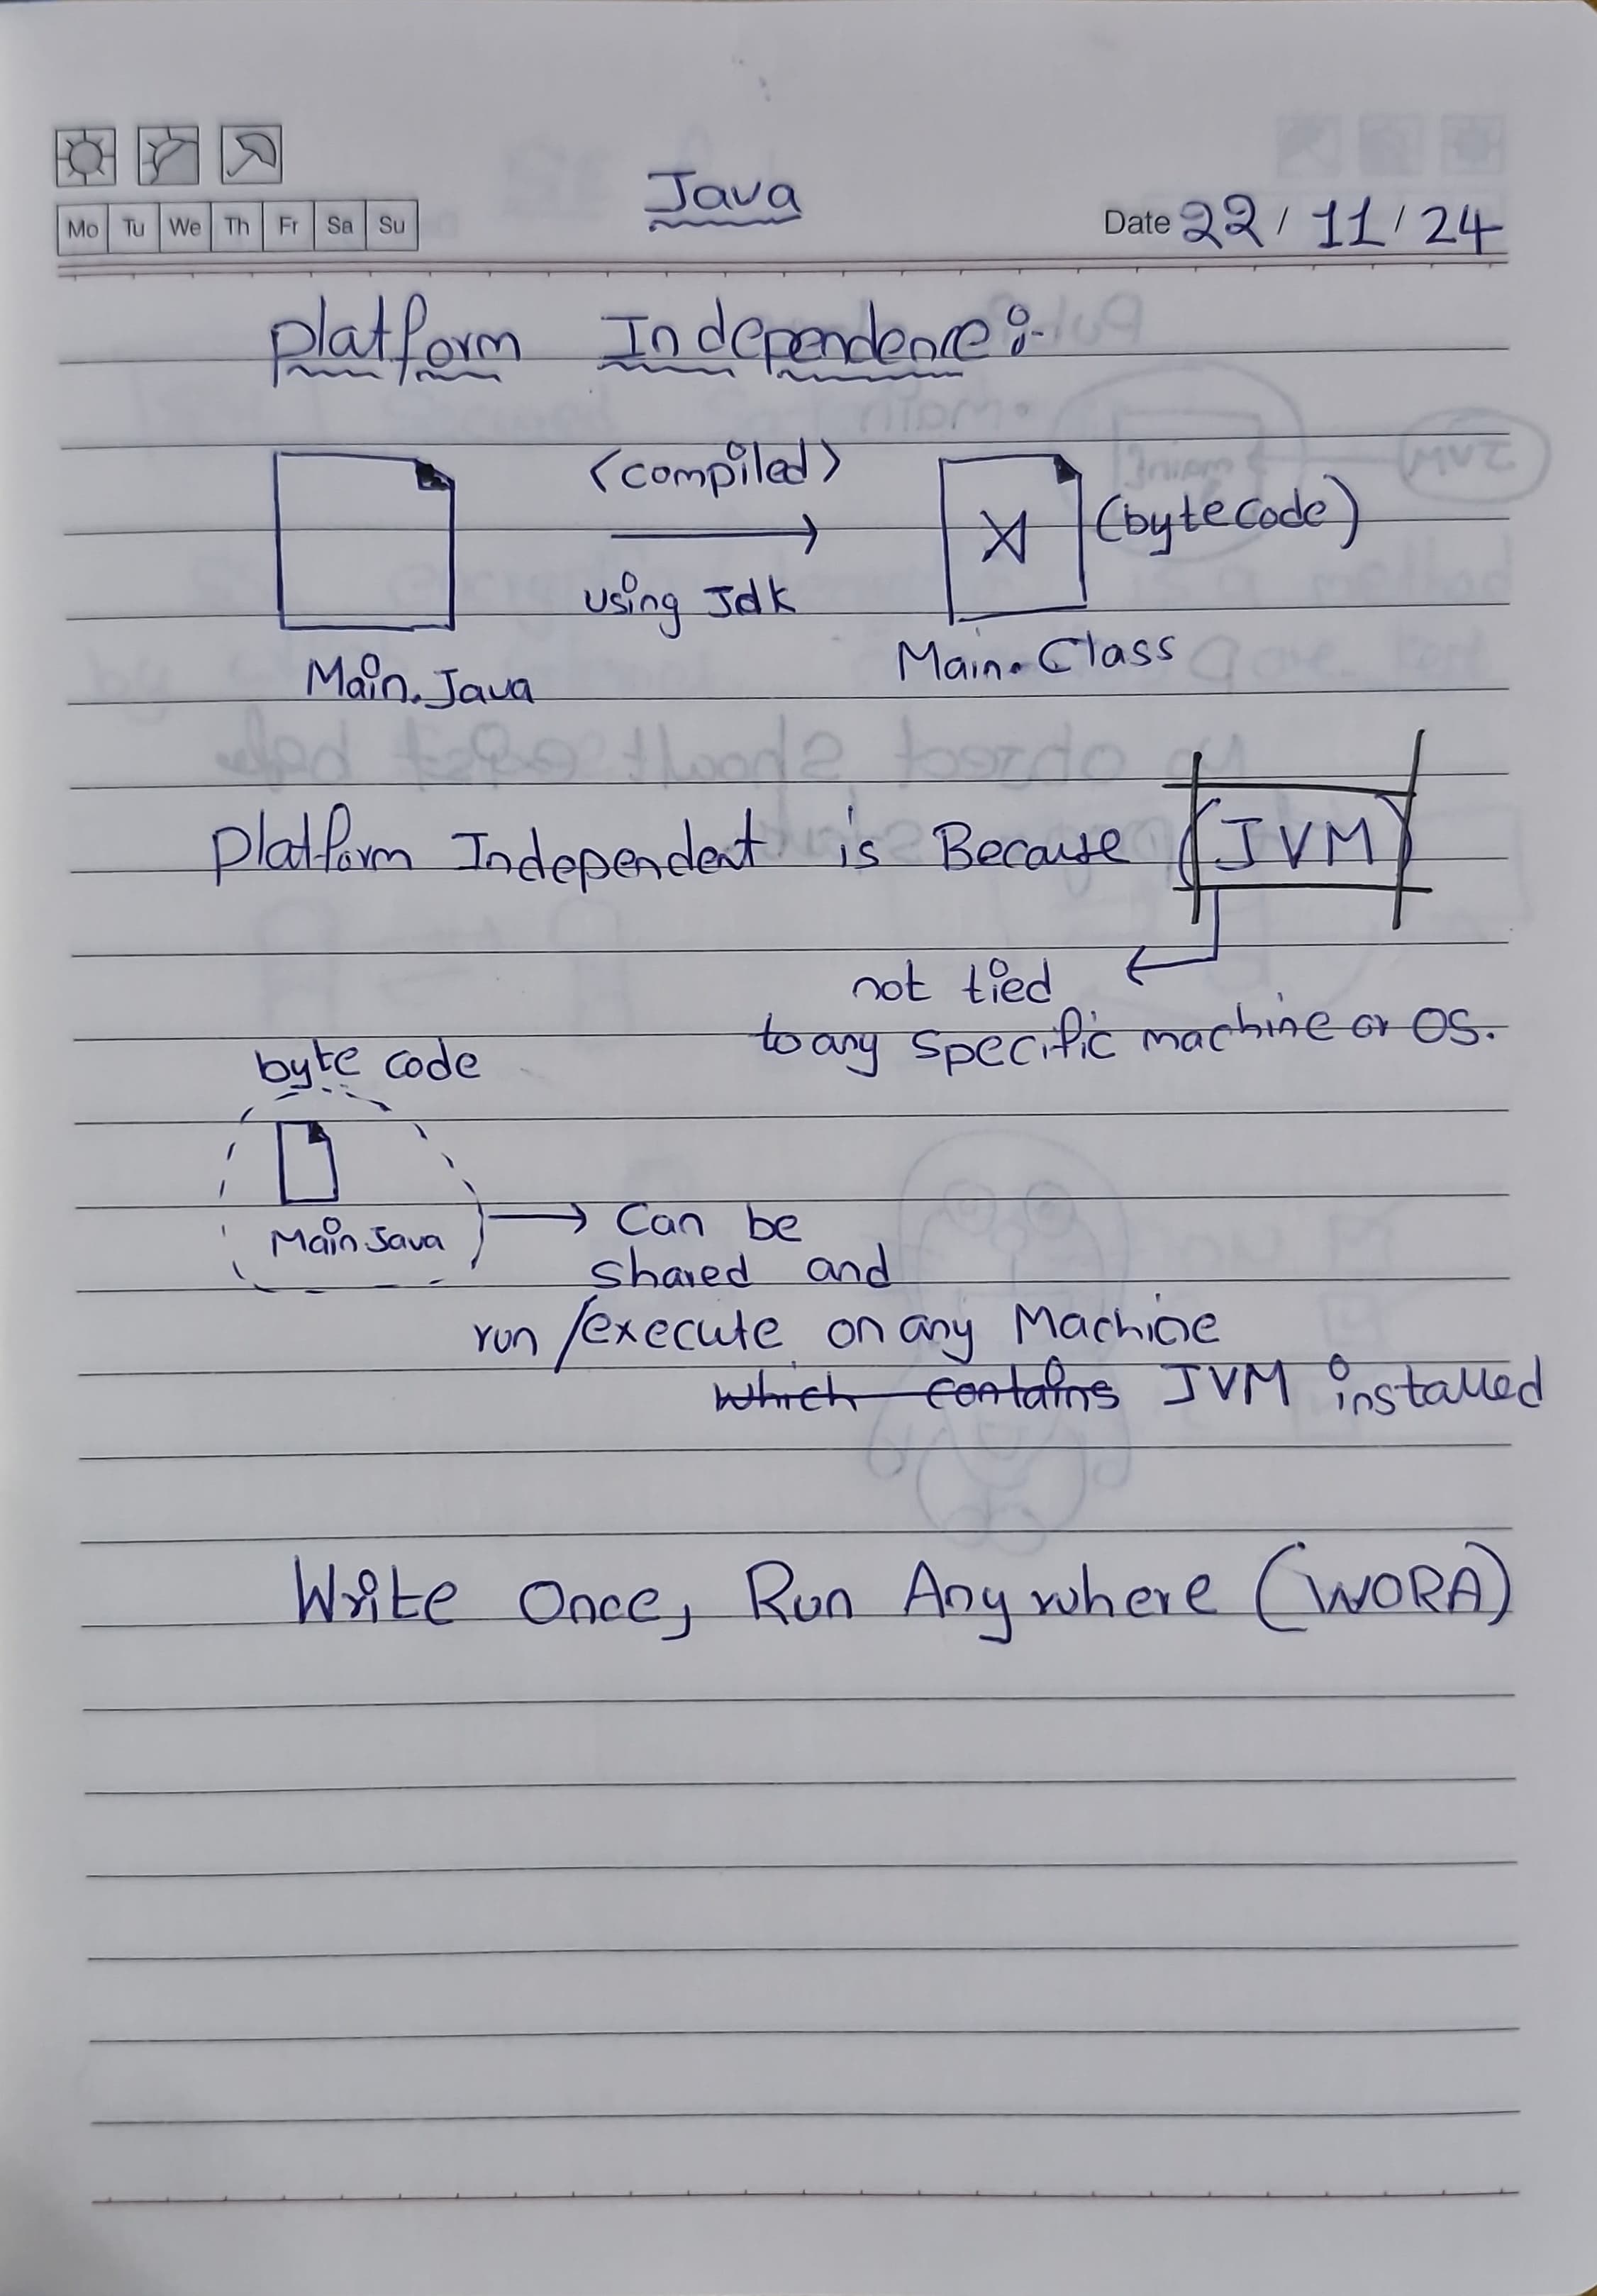 Java
Mo Tu We Th Fr Sa Su
Date 22 / 11 / 24
Platform Independence :-
<compiled>
(bytecode)
using Jdk
Main.Java
Main.Class
Platform Independent is Because (JVM)
not tied
to any specific machine or OS.
byte code
Main Java
→ Can be
shared and
run /execute on any Machine
which contains JVM installed
Write Once, Run Anywhere (WORA)